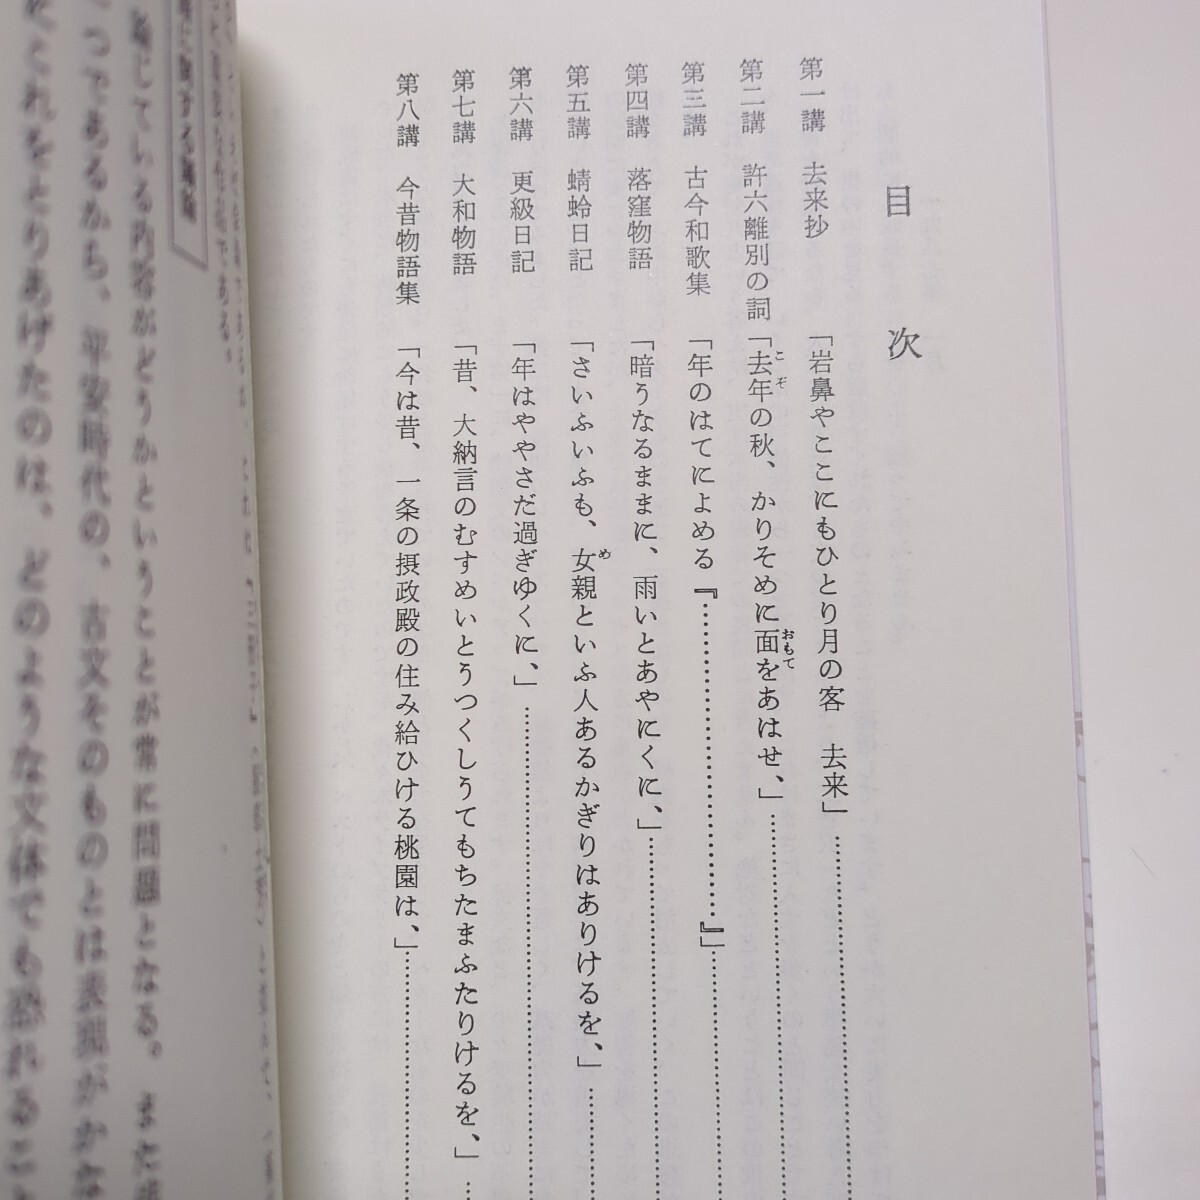 目次
第一講　去来抄　「岩鼻やここにもひとり月の客　去来」
第二講　許六離別の詞　「去年の秋、かりそめに面をあはせ、」
こぞ
おもて
第三講　古今和歌集　「年のはてによめる『……………………』」
第四講　落窪物語　「暗うなるままに、雨いとあやにくに、」
第五講　蜻蛉日記　「さいふいふも、女親といふ人あるかぎりはありけるを、」
め
第六講　更級日記　「年はややさだ過ぎゆくに、」
第七講　大和物語　「昔、大納言のむすめいとうつくしうてもちたまふたりけるを、」
第八講　今昔物語集　「今は昔、一条の摂政殿の住み給ひける桃園は、」
である。
じている内容がどうかということが常に問題となる。また
つであるから、平安時代の、古文そのものとは表現がかな
これをとりあげたのは、どのような文体でも恐れるこ